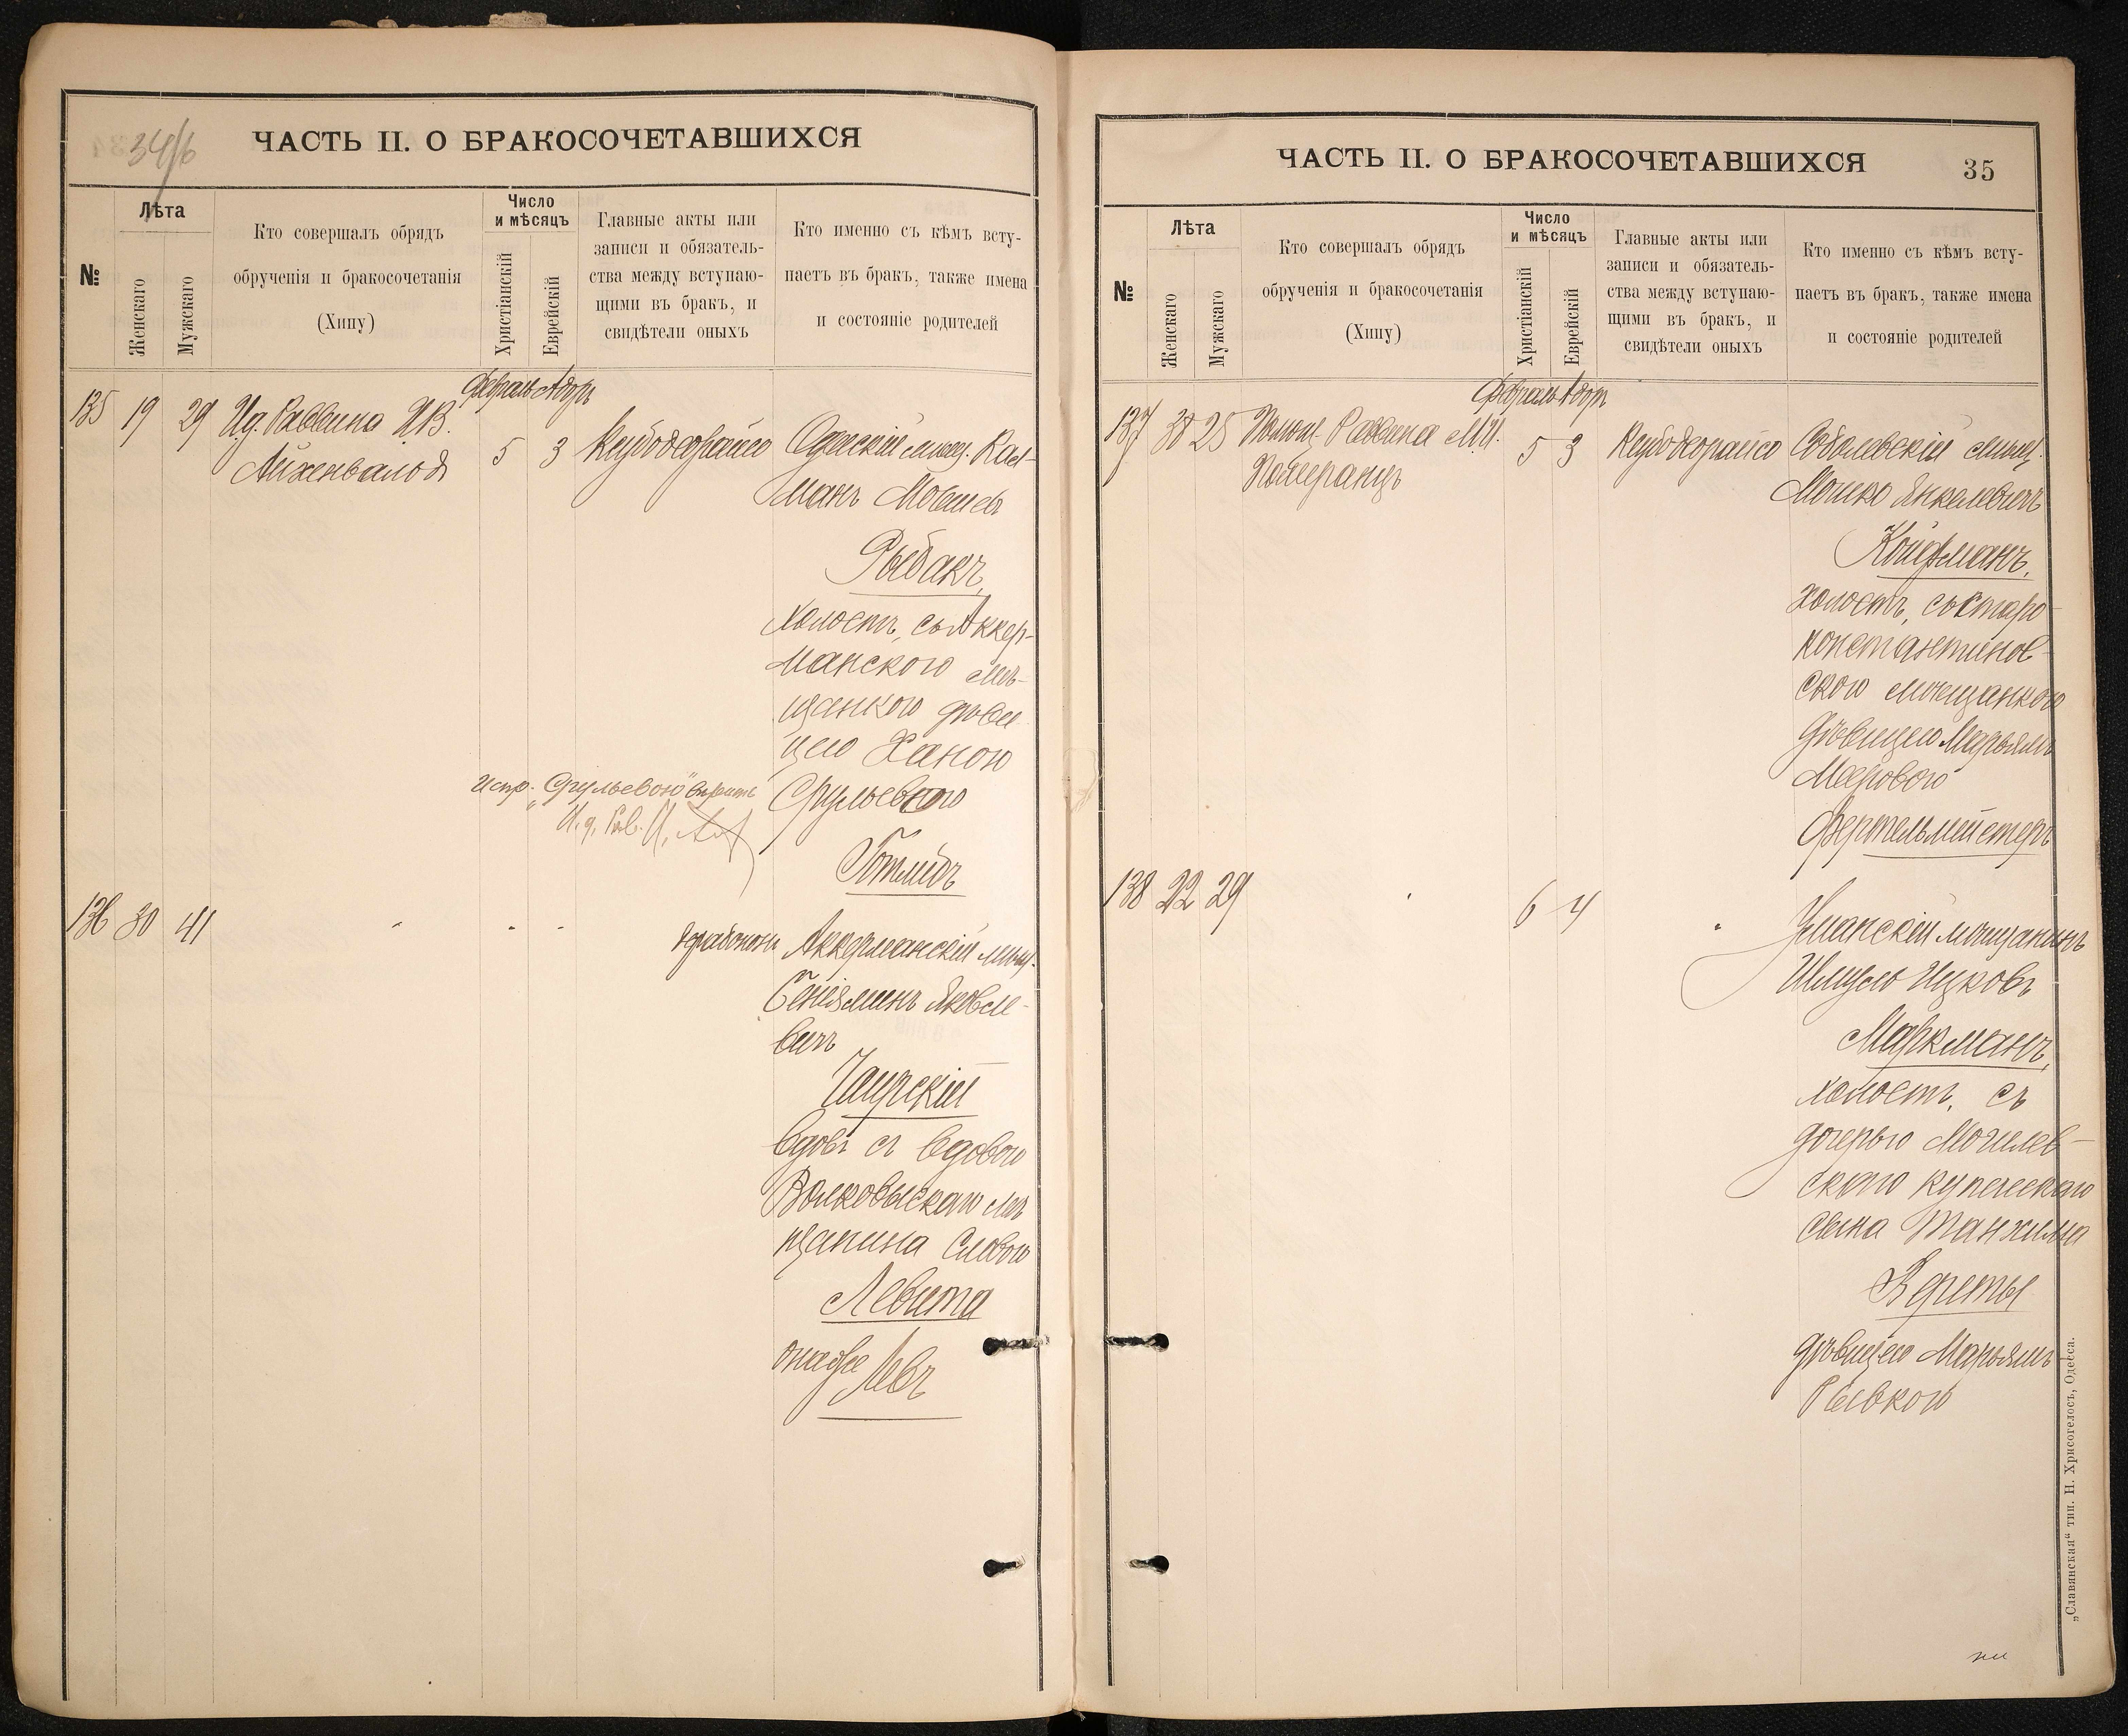 34/б
ЧАСТЬ II. О БРАКОСОЧЕТАВШИХСЯ
№
Лѣта
Женскаго
Мужскаго
Кто совершалъ обрядъ
обрученія и бракосочетанія
(Хипу)
Число
и мѣсяцъ
Христіанскій
Еврейскій
Главные акты или
записи и обязатель-
ства между вступаю-
щими въ бракъ, и
свидѣтели оныхъ
Кто именно съ кѣмъ всту-
паетъ въ бракъ, также имена
и состояніе родителей
Февраль Адоръ
135 19 29 И.д. Раввина И.В.
Айхенвальд
5 3
Одесскій мѣщ. Кал-
манъ Мовшевъ
Рыбакъ,
холостъ, съ Аккер-
манского мѣ-
щанкою дѣви
цею Ханою
Срулевною
Испр. „Срульевою" вѣрить
И. д. Рав.
Готлибъ
136 30 41
Аккерманскій мѣщ.
Беніяминъ Яковле-
вичъ
вдовъ съ вдовою
Волковыскаго мѣ
щанина Славою
Левита
она же Левъ
ЧАСТЬ II. О БРАКОСОЧЕТАВШИХСЯ
35
№
Лѣта
Женскаго
Мужскаго
Кто совершалъ обрядъ
обрученія и бракосочетанія
(Хипу)
Число
и мѣсяцъ
Христіанскій
Еврейскій
Главные акты или
записи и обязатель-
ства между вступаю-
щими въ бракъ, и
свидѣтели оныхъ
Кто именно съ кѣмъ всту-
паетъ въ бракъ, также имена
и состояніе родителей
Февраль Адоръ
137 25 Помощ. Раввина М.И.
Померанцъ
5 3
Соболевскій мѣщ.
Мошко Янкелевичъ
Койфманъ,
холостъ, съ Старо-
константинов-
скою мѣщанкою
дѣвицею Марьямъ
Мееровою
Фертельмейстеръ
138 22 29
6 4
Уманскій мѣщанинъ
Шмуль Ицковъ
Маркманъ,
холостъ, съ
дочерью Могилев-
скаго купеческаго
сына Танхима
дѣвицею Марьямъ
Рывкою
„Славянская“ тип. Н. Хрисогелосъ, Одесса.